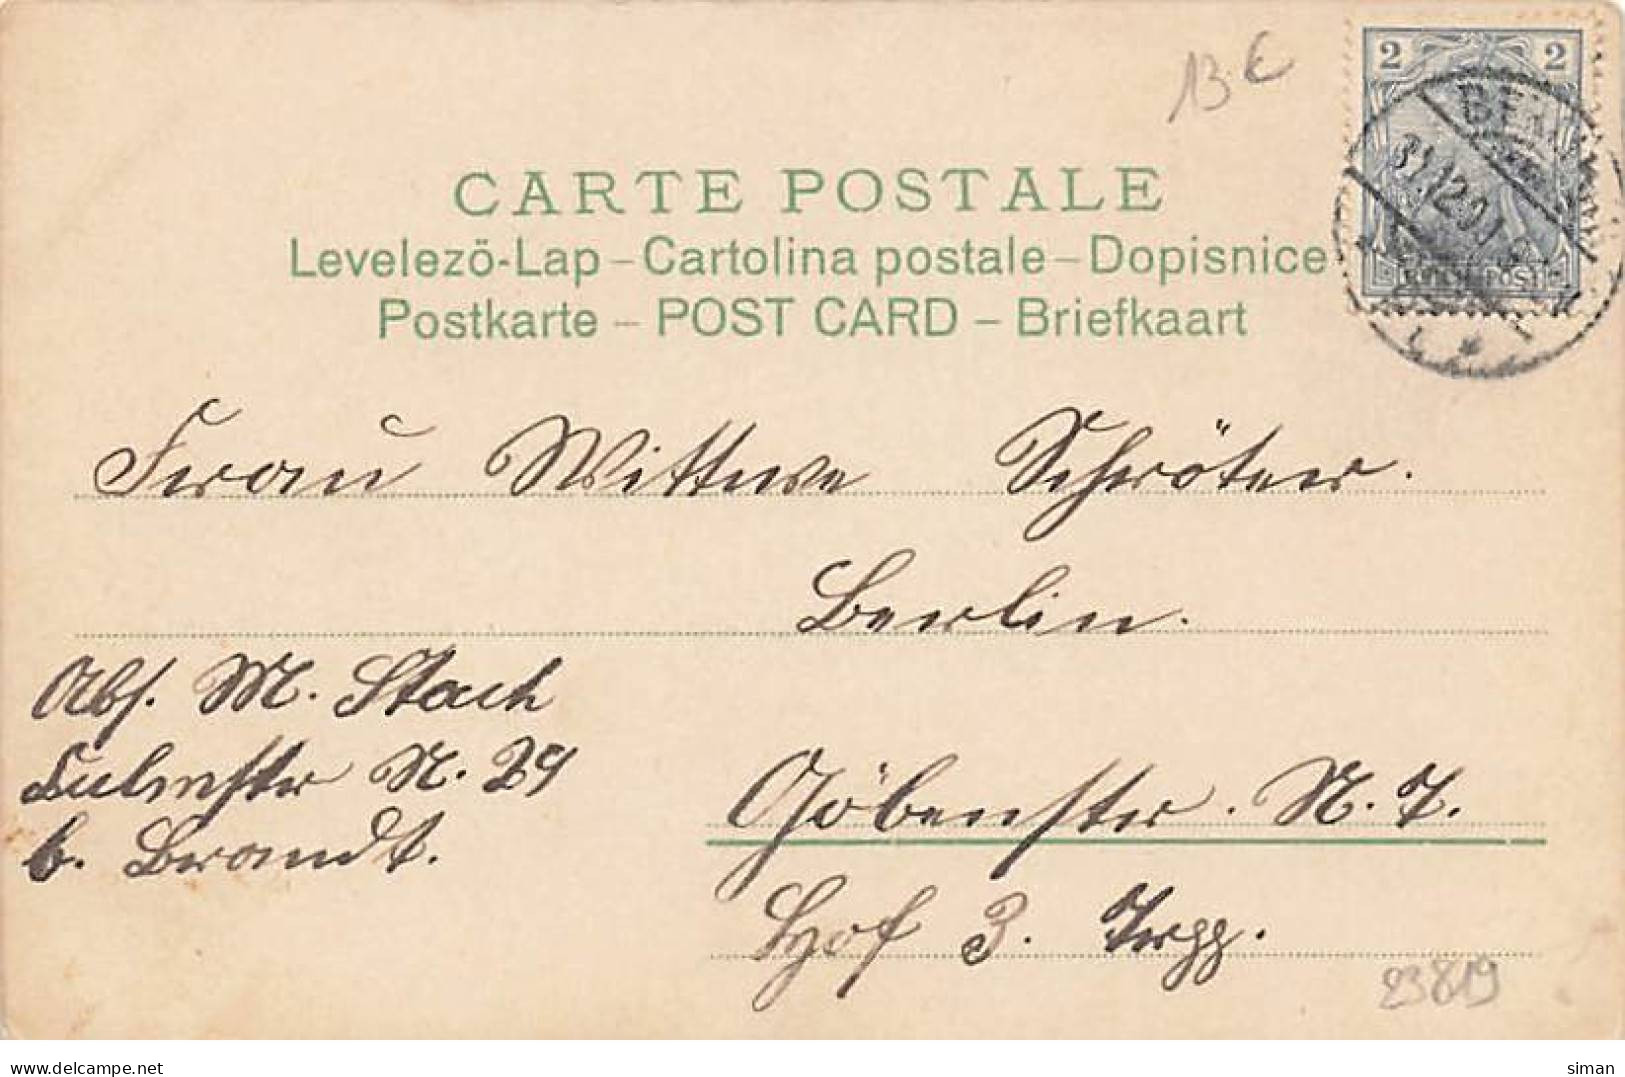 13 €
2 2
BERLIN
31.12.01
REICHSPOST
CARTE POSTALE
Levelezö-Lap – Cartolina postale – Dopisnice
Postkarte – POST CARD – Briefkaart
Frau Wittwe Schröter.
Berlin.
Abs. M. Stach
Culmstr N. 29
b. Brandt.
Göbenstr. N. 7.
Hof 3. Trpp.
23819
siman
www.delcampe.net